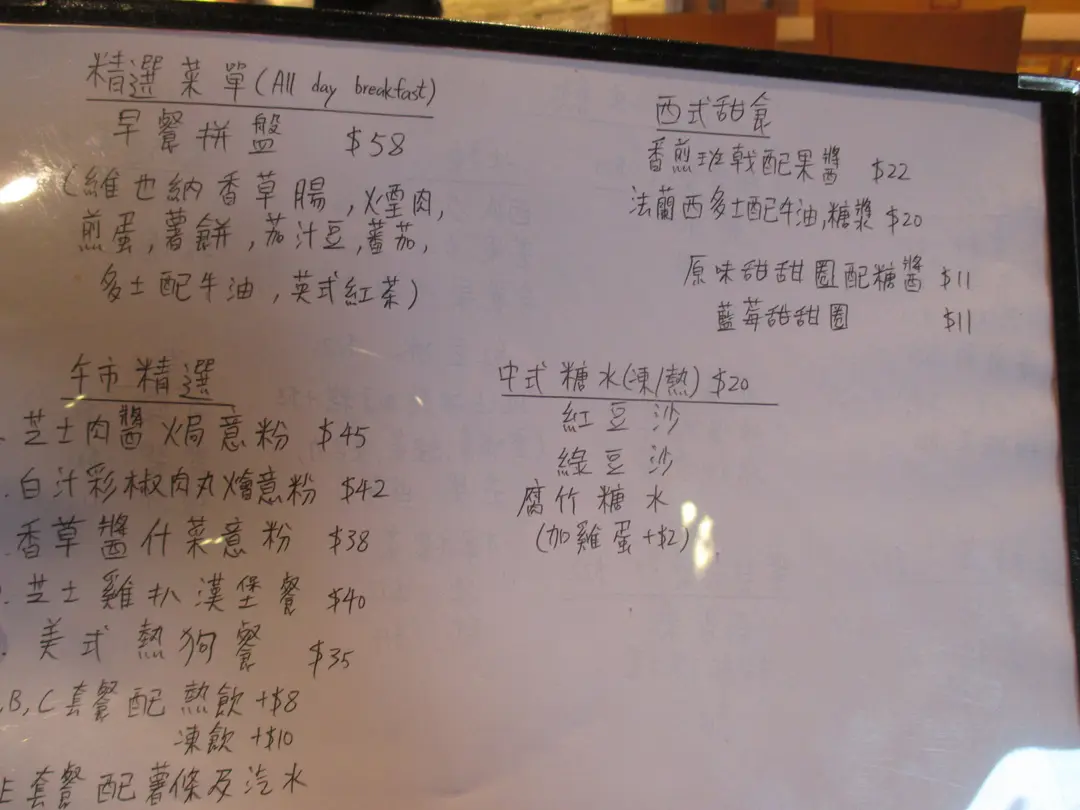 精選菜單(All day breakfast)
早餐拼盤 $58
(維也納香草腸,煙肉,
煎蛋,薯餅,茄汁豆,蕃茄,
多士配牛油,英式紅茶)
午市精選
芝士肉醬焗意粉 $45
白汁彩椒肉丸燴意粉 $42
香草醬什菜意粉 $38
芝士雞扒漢堡餐 $40
美式熱狗餐 $35
,B,C套餐配熱飲+$8
凍飲+$10
E套餐配薯條及汽水
西式甜食
香煎班戟配果醬 $22
法蘭西多士配牛油,糖漿 $20
原味甜甜圈配糖醬 $11
藍莓甜甜圈 $11
中式糖水(凍/熱) $20
紅豆沙
綠豆沙
腐竹糖水
(加雞蛋+$2)